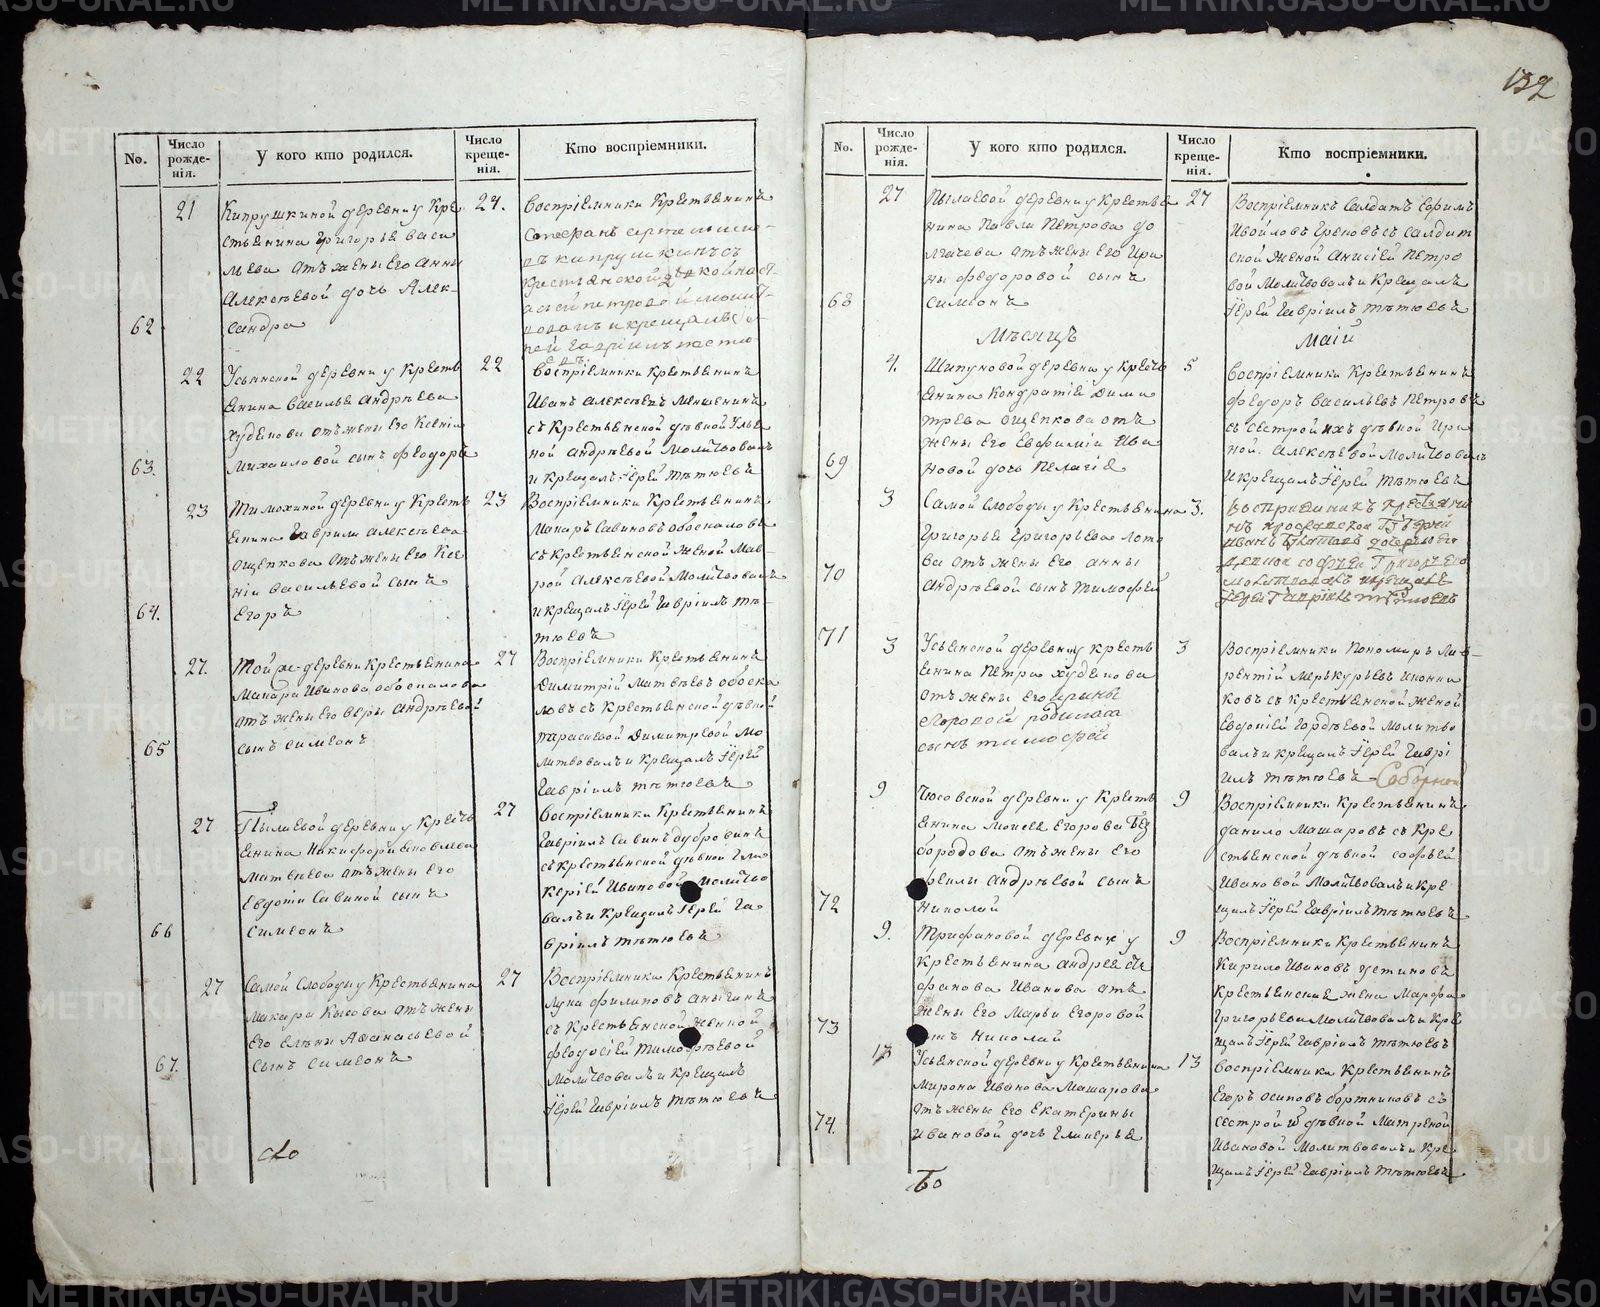 METRIKI.GASO-URAL.RU
132
No.
Число рожденія.
У кого кто родился.
Число крещенія.
Кто воспріемники.
21
Кипрушкиной деревни у Кре
стьянина Григорья Васи
льева отъ жены его Анны
Алексѣевой дочь Алек-
62
сандра
24.
Воспріемники Крестьянинъ
22
Усьянской деревни у Кресть
янина Василья Андрѣева
Худякова отъ жены его Ксеніи
63.
Михаиловой сынъ Феодоръ
22
воспріемники Крестьянинъ
Иванъ Алексѣевъ Меншенинъ
съ Крестьянской дѣвкой Улья
ной Андрѣевой Молитвовалъ
и крещалъ Іерей Тѣтюевъ
23
Тимохиной деревни у Кресть
янина Гаврила Алексѣева
Ощепкова отъ жены его Ксе
ніи Васильевой сынъ
64.
Егоръ
23
Воспріемники Крестьянинъ
Макаръ Савиновъ Обоскаловъ
съ крестьянской женой Мав-
рой Алексѣевой Молитвовалъ
и крещалъ Іерей Гавріилъ Тѣ-
тюевъ
27.
Той же деревни Крестьянина
Макара Иванова Обоскалова
отъ жены его Веры Андрѣевой
65
сынъ Симеонъ
27
Воспріемники Крестьянинъ
Димитрій Матвѣевъ Обоска
ловъ съ Крестьянской дѣвкой
Тарасиевой Димитревой Мо
литвовалъ и Крещалъ Іерей
Гавріилъ Тѣтюевъ
27
Пылаевой деревни у Кресть
янина Никифора Яковлева
Матвеева отъ жены его
Евдотьи Савиной сынъ
66
Симеонъ
27
Воспріемники Крестьянинъ
Гавріилъ Савинъ Дубровинъ
съ крестьянской дѣвкой Гли
керіей Ивановой Молитво
валъ и Крещалъ Іерей Га
вріилъ Тѣтюевъ
27
Самой Слободы у Крестьянина
Макара Кысова отъ жены
его Елены Афанасьевой
67.
сынъ Симеонъ
27
Воспріемники Крестьянинъ
Лука Филиповъ Аныгинъ
съ Крестьянской женкой
Феодосіей Тимофѣевой
Молитвовалъ и Крещалъ
Іерей Гавріилъ Тѣтюевъ
No.
Число рожденія.
У кого кто родился.
Число крещенія.
Кто воспріемники.
27
Пылаевой деревни у Крестья
нина Павла Петрова До
лгачева отъ жены его Ири
ны Федоровой сынъ
68
Симеонъ
27
Воспріемникъ Солдатъ Ефимъ
съ Солдат
ской женой Анисіей Петро
вой Молитвовалъ и Крещалъ
Іерей Гавріилъ Тѣтюевъ
Мѣсяцъ
Маій
4.
Шипуновой деревни у Кресть
янина Кондратій Дими
трева Ощепкова отъ
жены его Евфиміи Ива
69
новой дочь Пелагія
5
Воспріемники Крестьянинъ
Федоръ Васильевъ Петровъ
съ сестрой ихъ дѣвкой Ири
ной Алексѣевой Молитвовалъ
и крещалъ Іерей Тѣтюевъ
3
Самой Слободы у Крестьянина
Григорья Григорьева Лото
ва отъ жены его Анны
70
Андрѣевой сынъ Тимофей
3.
Іерей Гавріилъ Тѣтюевъ
71
3
Усьянской деревни у Кресть
янина Петра Худякова
отъ жены его Ирины
родился
сынъ Тимофей
3
Воспріемники Пономарь Лав-
рентій Меркурьевъ Иконни
ковъ съ Крестьянской женой
Евдокіей Гордѣевой Молитво
валъ и крещалъ Іерей Гаврі
илъ Тѣтюевъ
9
Чюсовской деревни у Кресть
янина Моисея Егорова Без
бородова отъ жены его
Андрѣевой сынъ
72
Николай
9
Воспріемники Крестьянинъ
Данило Машаровъ съ Кре
стьянской дѣвкой Софьей
Ивановой Молитвовалъ и Кре
щалъ Іерей Гавріилъ Тѣтюевъ
9.
Трифановой деревни у
Крестьянина Андрея Сте
фанова Иванова отъ
жены его Марьи Егоровой
73
сынъ Николай
9
Воспріемники Крестьянинъ
Кирило Ивановъ Устиновъ
Крестьянская жена Марфа
Григорьева Молитвовалъ и Кре
щалъ Іерей Гавріилъ Тѣтюевъ
13
Усьянской деревни у Крестьянина
Мирона Иванова Машарова
отъ жены его Екатерины
74.
Ивановой дочь Гликерья
13
Воспріемники Крестьянинъ
Егоръ Осиповъ Бортниковъ съ
сестрой дѣвкой Матреной
Ивановой Молитвовалъ и Кре
щалъ Іерей Гавріилъ Тѣтюевъ